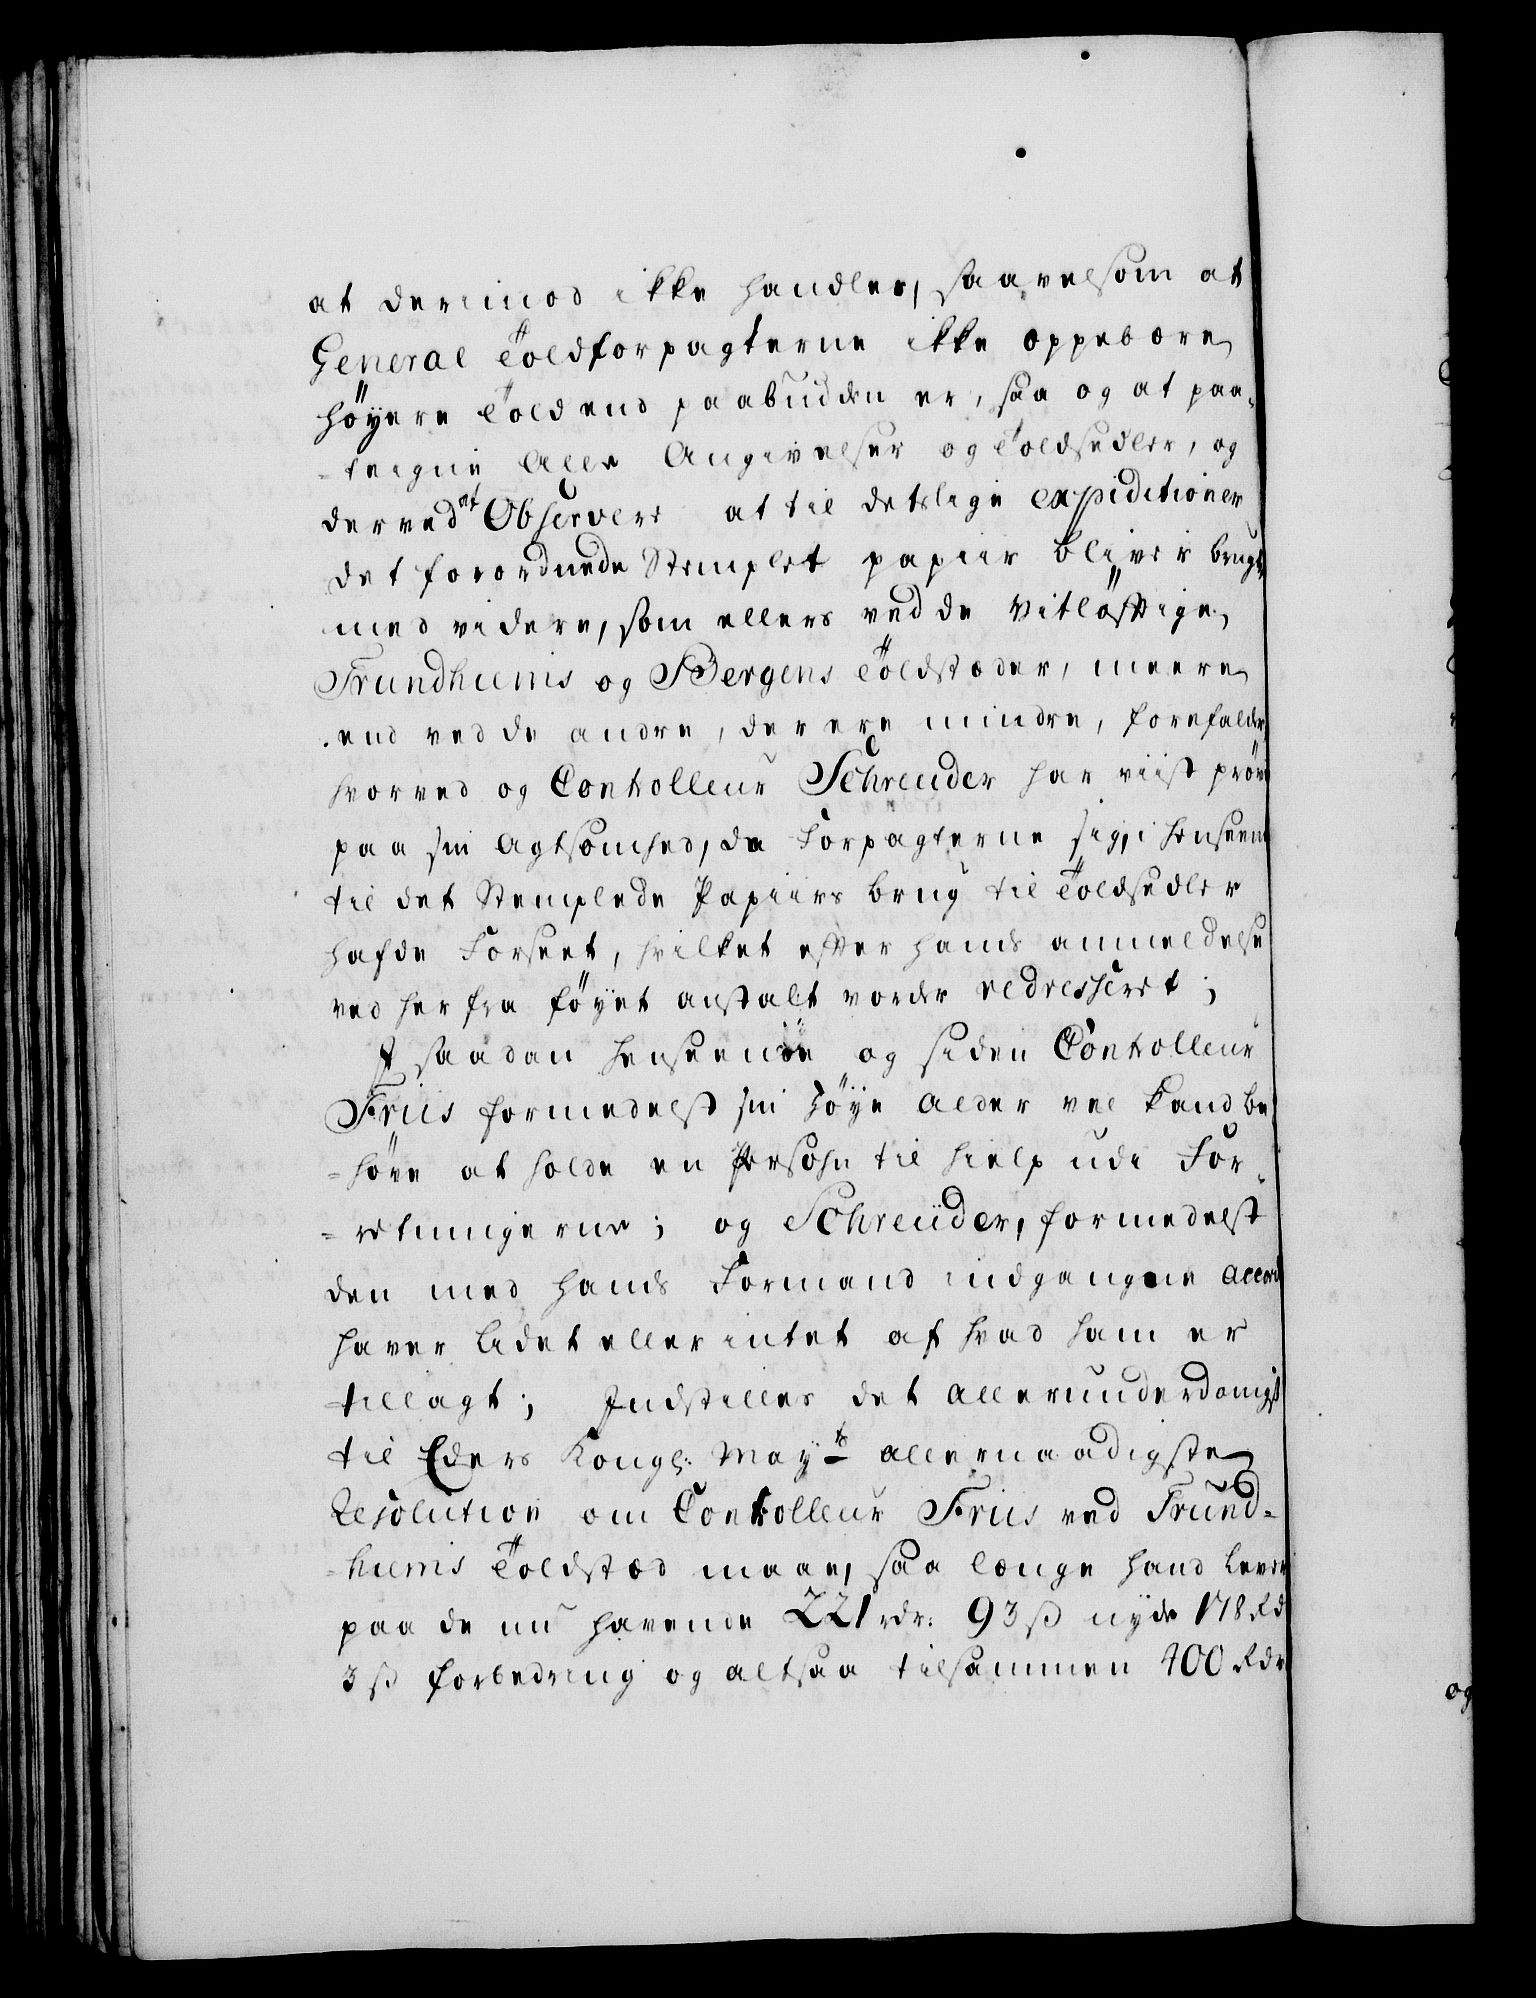 at derimod ikke handles, saavelsom at
General Toldforpagterne ikke oppebære
høyere Told end paabudden er, saa og at paa-
-teigne Alle Angivelser og Toldsedler, og
derved at Observere at til detslige expeditioner
det forordnede Stemplet papiir bliver brugt
med videre, som ellers ved de Vitløfftige
Trundhiems og Bergens Toldstæder, meere
end ved de andre, der ere mindre, forefalder
hvorved og Controlleur Schreuder har viist prøve
paa sin Agtsomhed, da Forpagterne sig, i henseende
til det Stemplede Papiirs brug til Toldsedler
hafde Forseet, hvilket efter hands anmeldelse
ved her fra føyet anstalt vorder redresseret;
I saadan henseende og siden Controlleur
Friis formedelst sin høye Alder vel kand be-
-høve at holde en Persohn til hielp udi For-
-retningerne; og Schreüder, formedelst
den med hands Formand indgangne Accord
haver lidet eller intet af hvad ham er
tillagt; Indstilles det Allerunderdanigst
til Eders Kongl: May:ts allernaadigste
Resolution om Controlleur Friis ved Trund-
-hiems Toldstæd maae, saa længe hand lever
paa de nu havende 221 rdr: 93 ß nyde 178 Rd
3 ß forbedring og altsaa tilsammen 400 Rdr
og